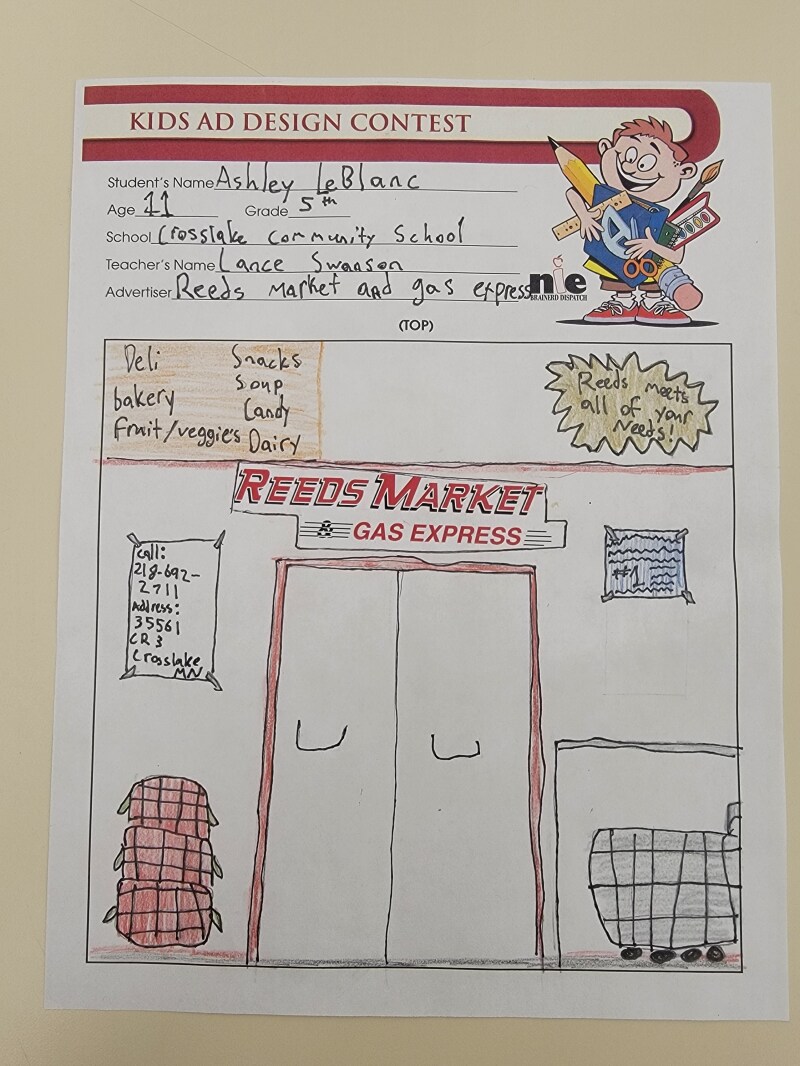 KIDS AD DESIGN CONTEST
Student's Name Ashley LeBlanc
Age 11 Grade 5th
School Crosslake Community School
Teacher's Name Lance Swanson
Advertiser Reeds Market and gas express
nie
BRAINERD DISPATCH
(TOP)
Deli Snacks
Soup
bakery Candy
Fruit/veggies Dairy
Reeds meets
all of your
Needs!
REEDS MARKET
& GAS EXPRESS
Call:
218-692-
2711
Address:
35561
CR 3
Crosslake
MN
#1